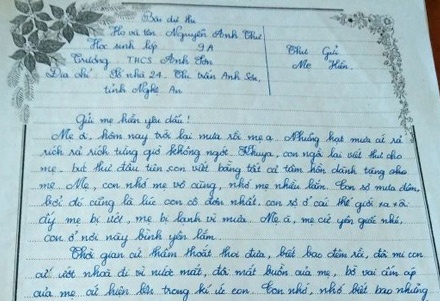 Bài dự thi
Họ và tên. Nguyễn Anh Thư
Học sinh lớp 9A
Trường THCS Anh Sơn
Địa chỉ: Số nhà 24, Thị trấn Anh Sơn,
tỉnh Nghệ An.
Thư Gửi
Mẹ Hiền.
Gửi mẹ hiền yêu dấu!
Mẹ ơi, hôm nay trời lại mưa rồi mẹ ạ. Những hạt mưa cứ rả
rích rả rích từng giờ không ngớt. Khuya, con ngồi lại viết thư cho
mẹ, bức thư đầu tiên con viết bằng tất cả tâm hồn dành tặng cho
mẹ. Mẹ, con nhớ mẹ vô cùng, nhớ mẹ nhiều lắm. Con sợ mưa đêm,
bởi đó cũng là lúc con cô đơn nhất, con sợ ở cái thế giới xa xôi
ấy, mẹ bị ướt, mẹ bị lạnh vì mưa. Mẹ à, mẹ cứ yên giấc nhé,
con ở nơi này bình yên lắm.
Thời gian cứ thấm thoắt thoi đưa, biết bao đêm rồi, đôi mi con
cứ ướt nhoà đi vì nước mắt, đôi mắt buồn của mẹ, bờ vai ấm áp
của mẹ cứ hiện lên trong kí ức con. Con nhớ, nhớ biết bao những